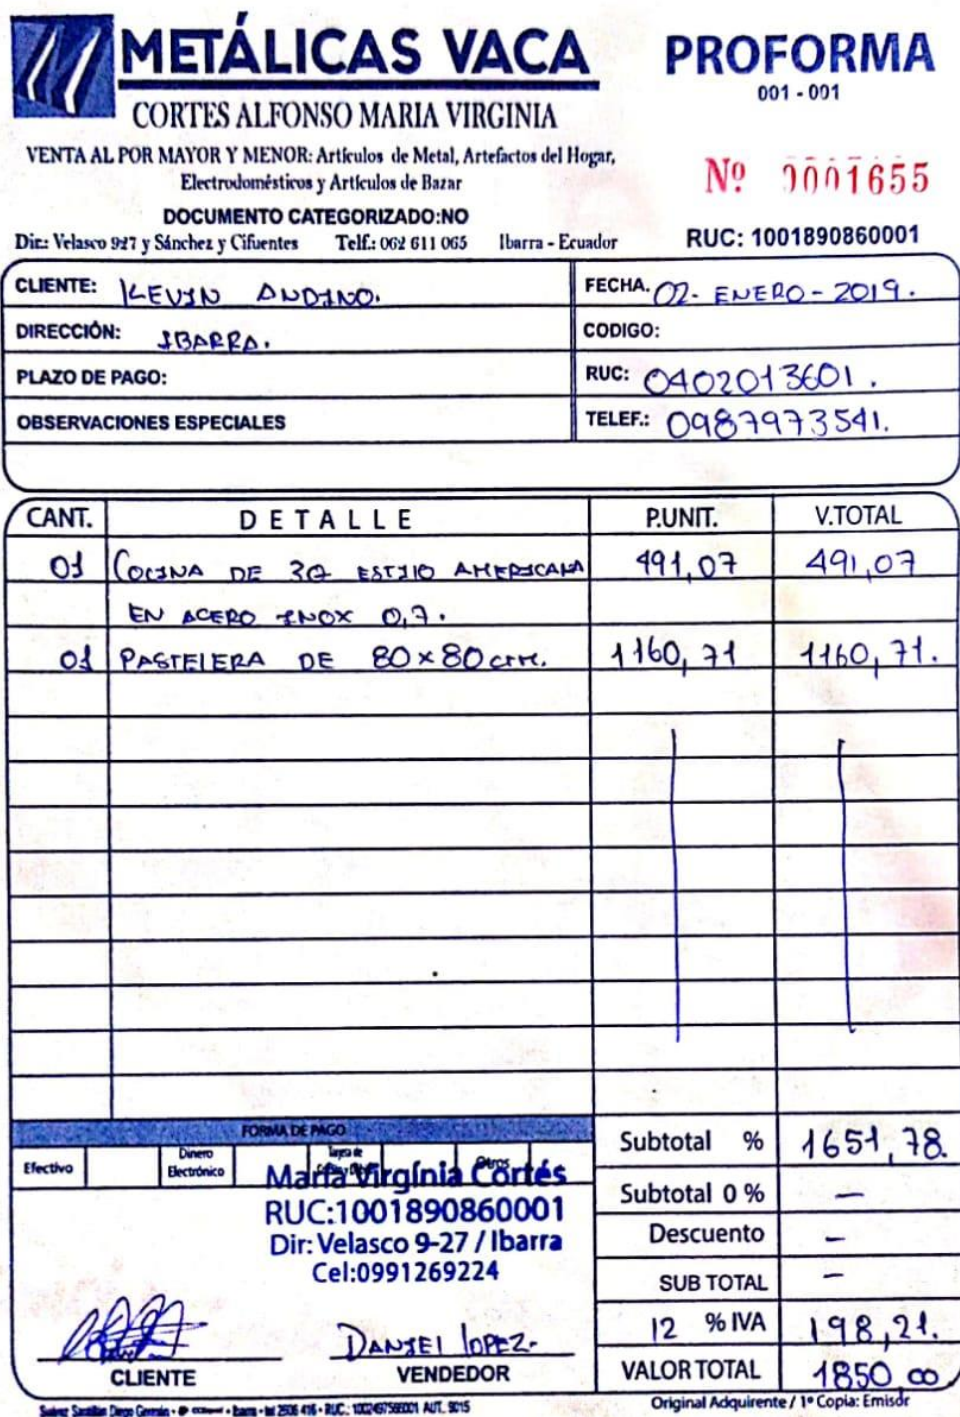 METÁLICAS VACA
CORTES ALFONSO MARIA VIRGINIA
VENTA AL POR MAYOR Y MENOR: Artículos de Metal, Artefactos del Hogar,
Electrodomésticos y Artículos de Bazar
DOCUMENTO CATEGORIZADO:NO
Dir.: Velasco 927 y Sánchez y Cifuentes Telf.: 062 611 065 Ibarra - Ecuador
PROFORMA
001 - 001
Nº 0001655
RUC: 1001890860001
CLIENTE: KEVIN ANDINO.
FECHA. 02- ENERO - 2019.
DIRECCIÓN: IBARRA.
CODIGO:
PLAZO DE PAGO:
RUC: 0402013601.
OBSERVACIONES ESPECIALES
TELEF.: 0987973541.
CANT. DETALLE P.UNIT. V.TOTAL
01 COCINA DE 3Q ESTILO AMERICANA 491,07 491,07
EN ACERO INOX 0,7.
01 PASTELERA DE 80x80 cm. 1160,71 1160,71.
FORMA DE PAGO
Efectivo Dinero Electrónico Tarjeta de Otros
María Virgínia Cortés
RUC:1001890860001
Dir: Velasco 9-27 / Ibarra
Cel:0991269224
DANIEL LOPEZ.
CLIENTE VENDEDOR
Subtotal % 1651,78.
Subtotal 0 % —
Descuento –
SUB TOTAL –
12 % IVA 198,21.
VALOR TOTAL 1850,00
Original Adquirente / 1ª Copia: Emisor
Suárez Santillán Diego Germán • Ibarra • tel 2606 416 • RUC.: 1002497566001 AUT. 9015